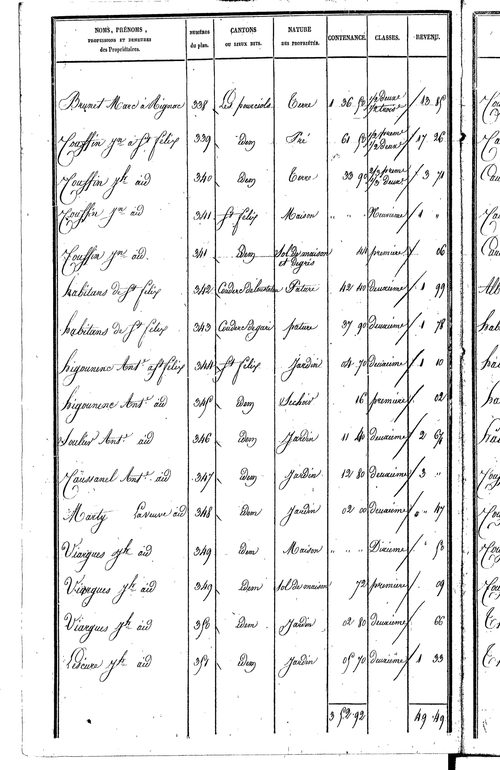 NOMS, PRÉNOMS, PROFESSIONS ET DEMEURES des Propriétaires. NUMÉROS du plan. CANTONS OU LIEUX DITS. NATURE DES PROPRIÉTÉS. CONTENANCE. CLASSES. REVENU.
Brunet Marc à Rignac 338 Les pourciols Terre 1 36 50 1/2 deuxe 1/2 trois 13 85
Couffin jn à St félix 339 idem Pré 61 50 1/2 preme 1/2 deuxe 17 26
Couffin jh aid 340 idem Terre 33 90 2/3 preme 1/3 deuxe 3 71
Couffin jn aid 341 St félix Maison " " " Neuvieme 1 "
Couffin jn aid. 341 idem Sol de maison et degrés 44 premiere 06
habitans de St félix 342 Couderc de Pature 42 40 deuxieme 1 99
habitans de St félix 343 Couderc pature 37 90 deuxieme 1 78
higounenc Antne à St félix 344 St félix Jardin 04 70 Deuxième 1 10
higounenc Antne aid 345 idem Sechoir 16 premiere 02
Soulier Antne aid 346 idem Jardin 11 40 deuxieme 2 67
Caussanel Antne aid 347 idem Jardin 12 80 Deuxieme 3 "
Marty La veuve aid 348 idem Jardin 02 00 Deuxieme " 47
Viargues jh aid 349 idem Maison " " " Dixieme " 50
Viargues jh aid 349 idem Sol de maison 72 premiere 09
Viargues jh aid 350 idem Jardin 02 80 deuxieme 66
Lescure jh aid 351 idem Jardin 05 70 deuxieme 1 33
3 52 92 49 49